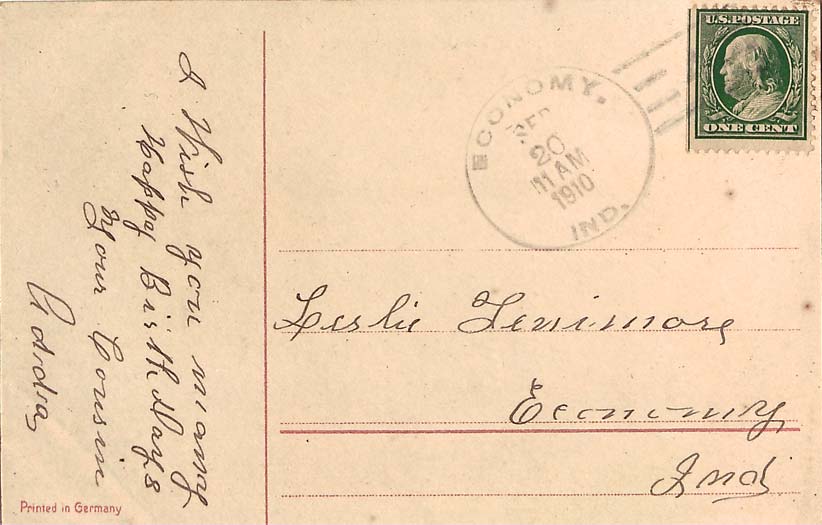 I Wish you many
Happy Birth Days
Your Cousin
U.S. POSTAGE
ONE CENT
ECONOMY.
20
11 AM
1910
IND.
Leslie Fenimore
Economy
Ind
Printed in Germany